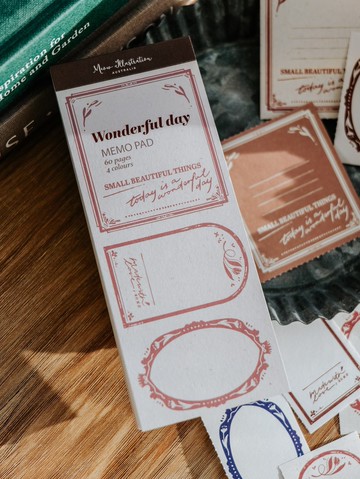 Inspiration for
Home and Garden
Meow Illustration
AUSTRALIA
Wonderful day
MEMO PAD
60 pages
4 colours
SMALL BEAUTIFUL THINGS
today is a
wonderful
day
SMALL BEAUTIFUL THINGS
today is a
SMALL BEAUTIFUL THINGS
today is a
wonderful
day